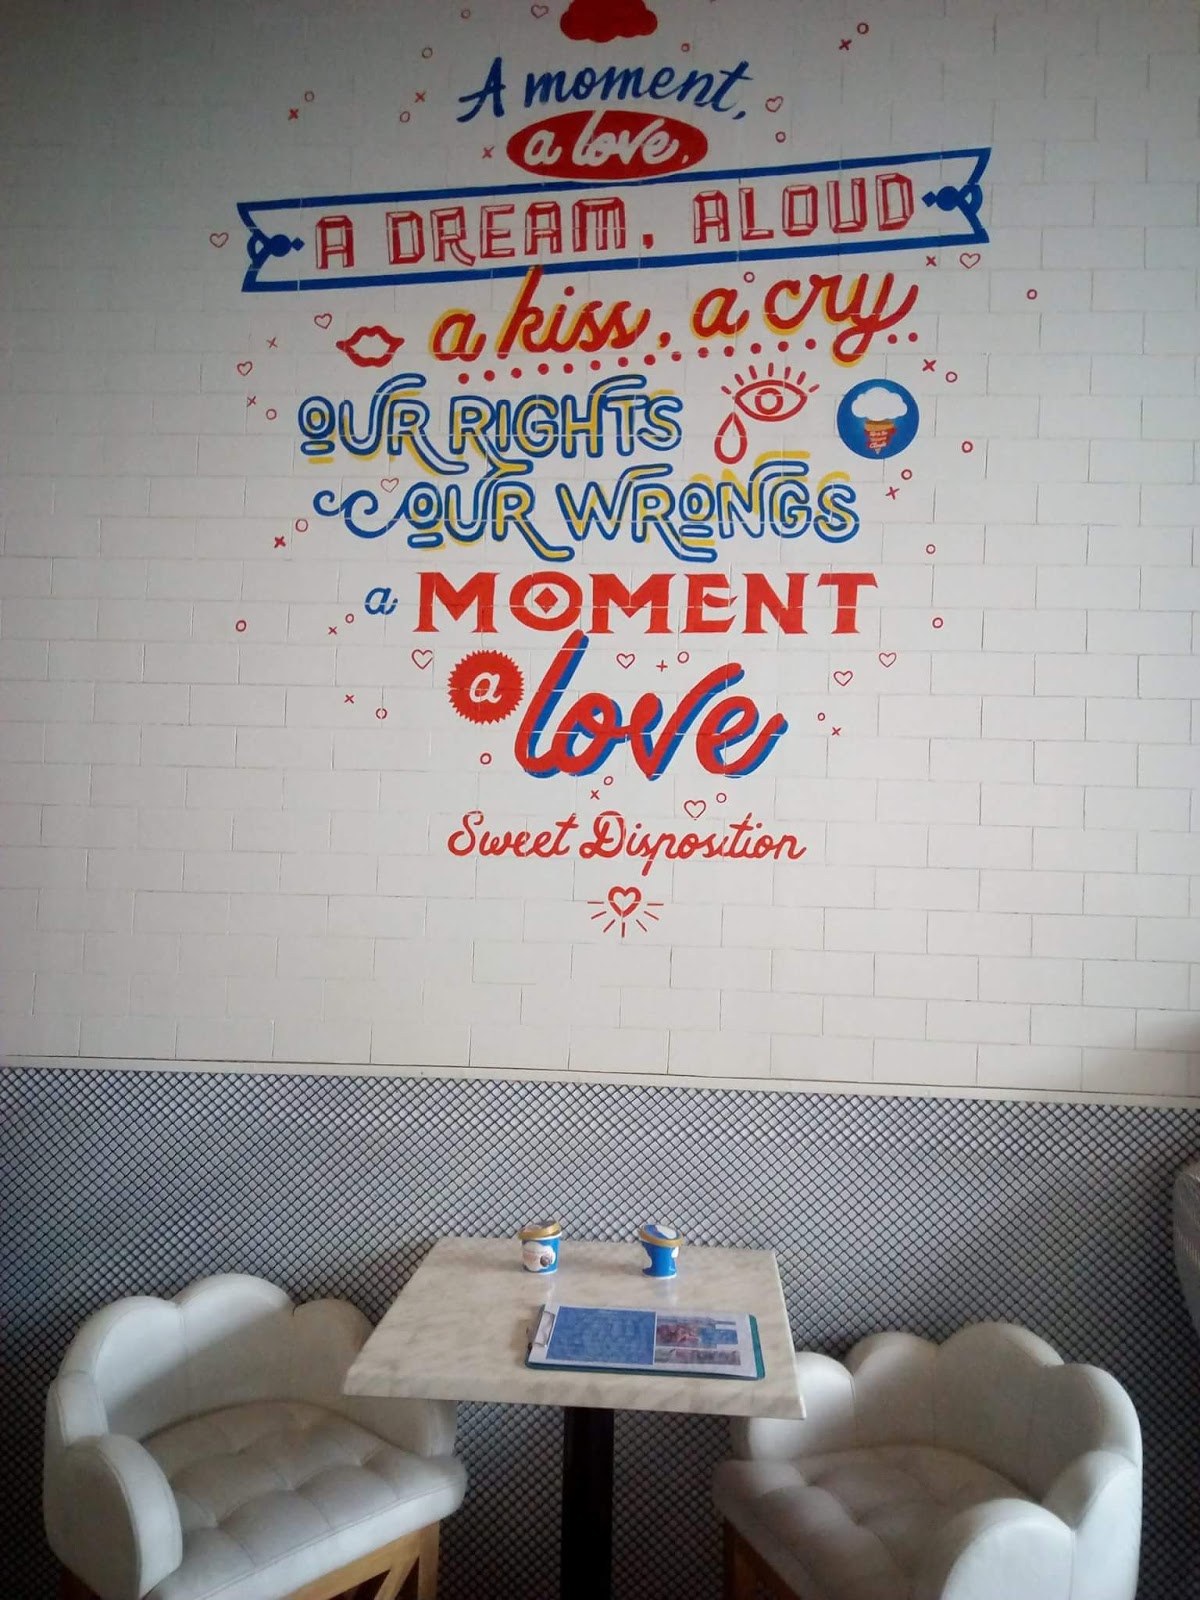 A moment,
a love,
A DREAM, ALOUD
a kiss, a cry
OUR RIGHTS
OUR WRONGS
a MOMENT
a love
Sweet Disposition